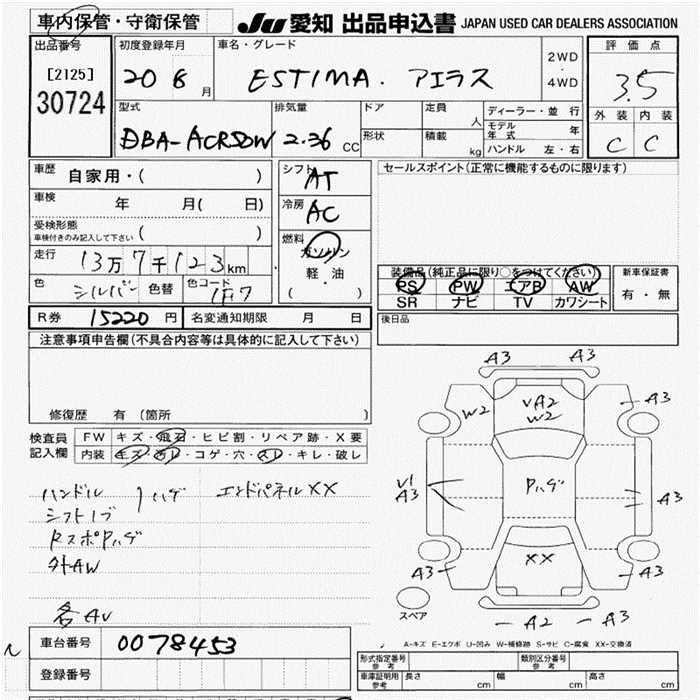 車内保管・守衛保管
JU 愛知 出品申込書 JAPAN USED CAR DEALERS ASSOCIATION
出品番号
[2125]
30724
初度登録年月
20 6 月
車名・グレード
ESTIMA. アエラス
2WD
・
4WD
評価点
3.5
外装 内装
C C
型式
DBA-ACR50W
排気量
2.36 CC
ドア
形状
定員 人
積載 kg
ディーラー・並行
モデル年式 年
ハンドル 左・右
車歴 自家用・( )
車検 年 月( 日)
受検形態
車検付きのみ記入して下さい ( )
走行 13万7千123km
色 シルバー 色替 色コード 1F7
シフト AT
冷房 AC
燃料
ガソリン
軽・油
( )
セールスポイント(正常に機能するものに限ります)
装備品(純正品に限り○をつけてください)
PS PW エアB AW
SR ナビ TV カワシート
新車保証書
有・無
R券 15220 円 名変通知期限 月 日
後日品
注意事項申告欄(不具合内容等は具体的に記入して下さい)
修復歴 有 (箇所 )
検査員
記入欄
FW キズ・飛石・ヒビ割・リペア跡・X要
内装 キズ・汚レ・コゲ・穴・スレ・キレ・破レ
ハンドル
シフトノブ
ハゲ
エンドパネルXX
RスポPハゲ
外AW
各AU
A3 A3
W2
VA2
W2
A3
V1
A3
Pハゲ
A3
XX
A3
A3
スペア
A2 A3
A-キズ E-エクボ U-凹み W-補修跡 S-サビ C-腐食 XX-交換済
車台番号 0078453
登録番号
形式指定番号
参考
類別区分番号
参考
車庫証明用
参考
長さ cm 幅 cm 高さ cm